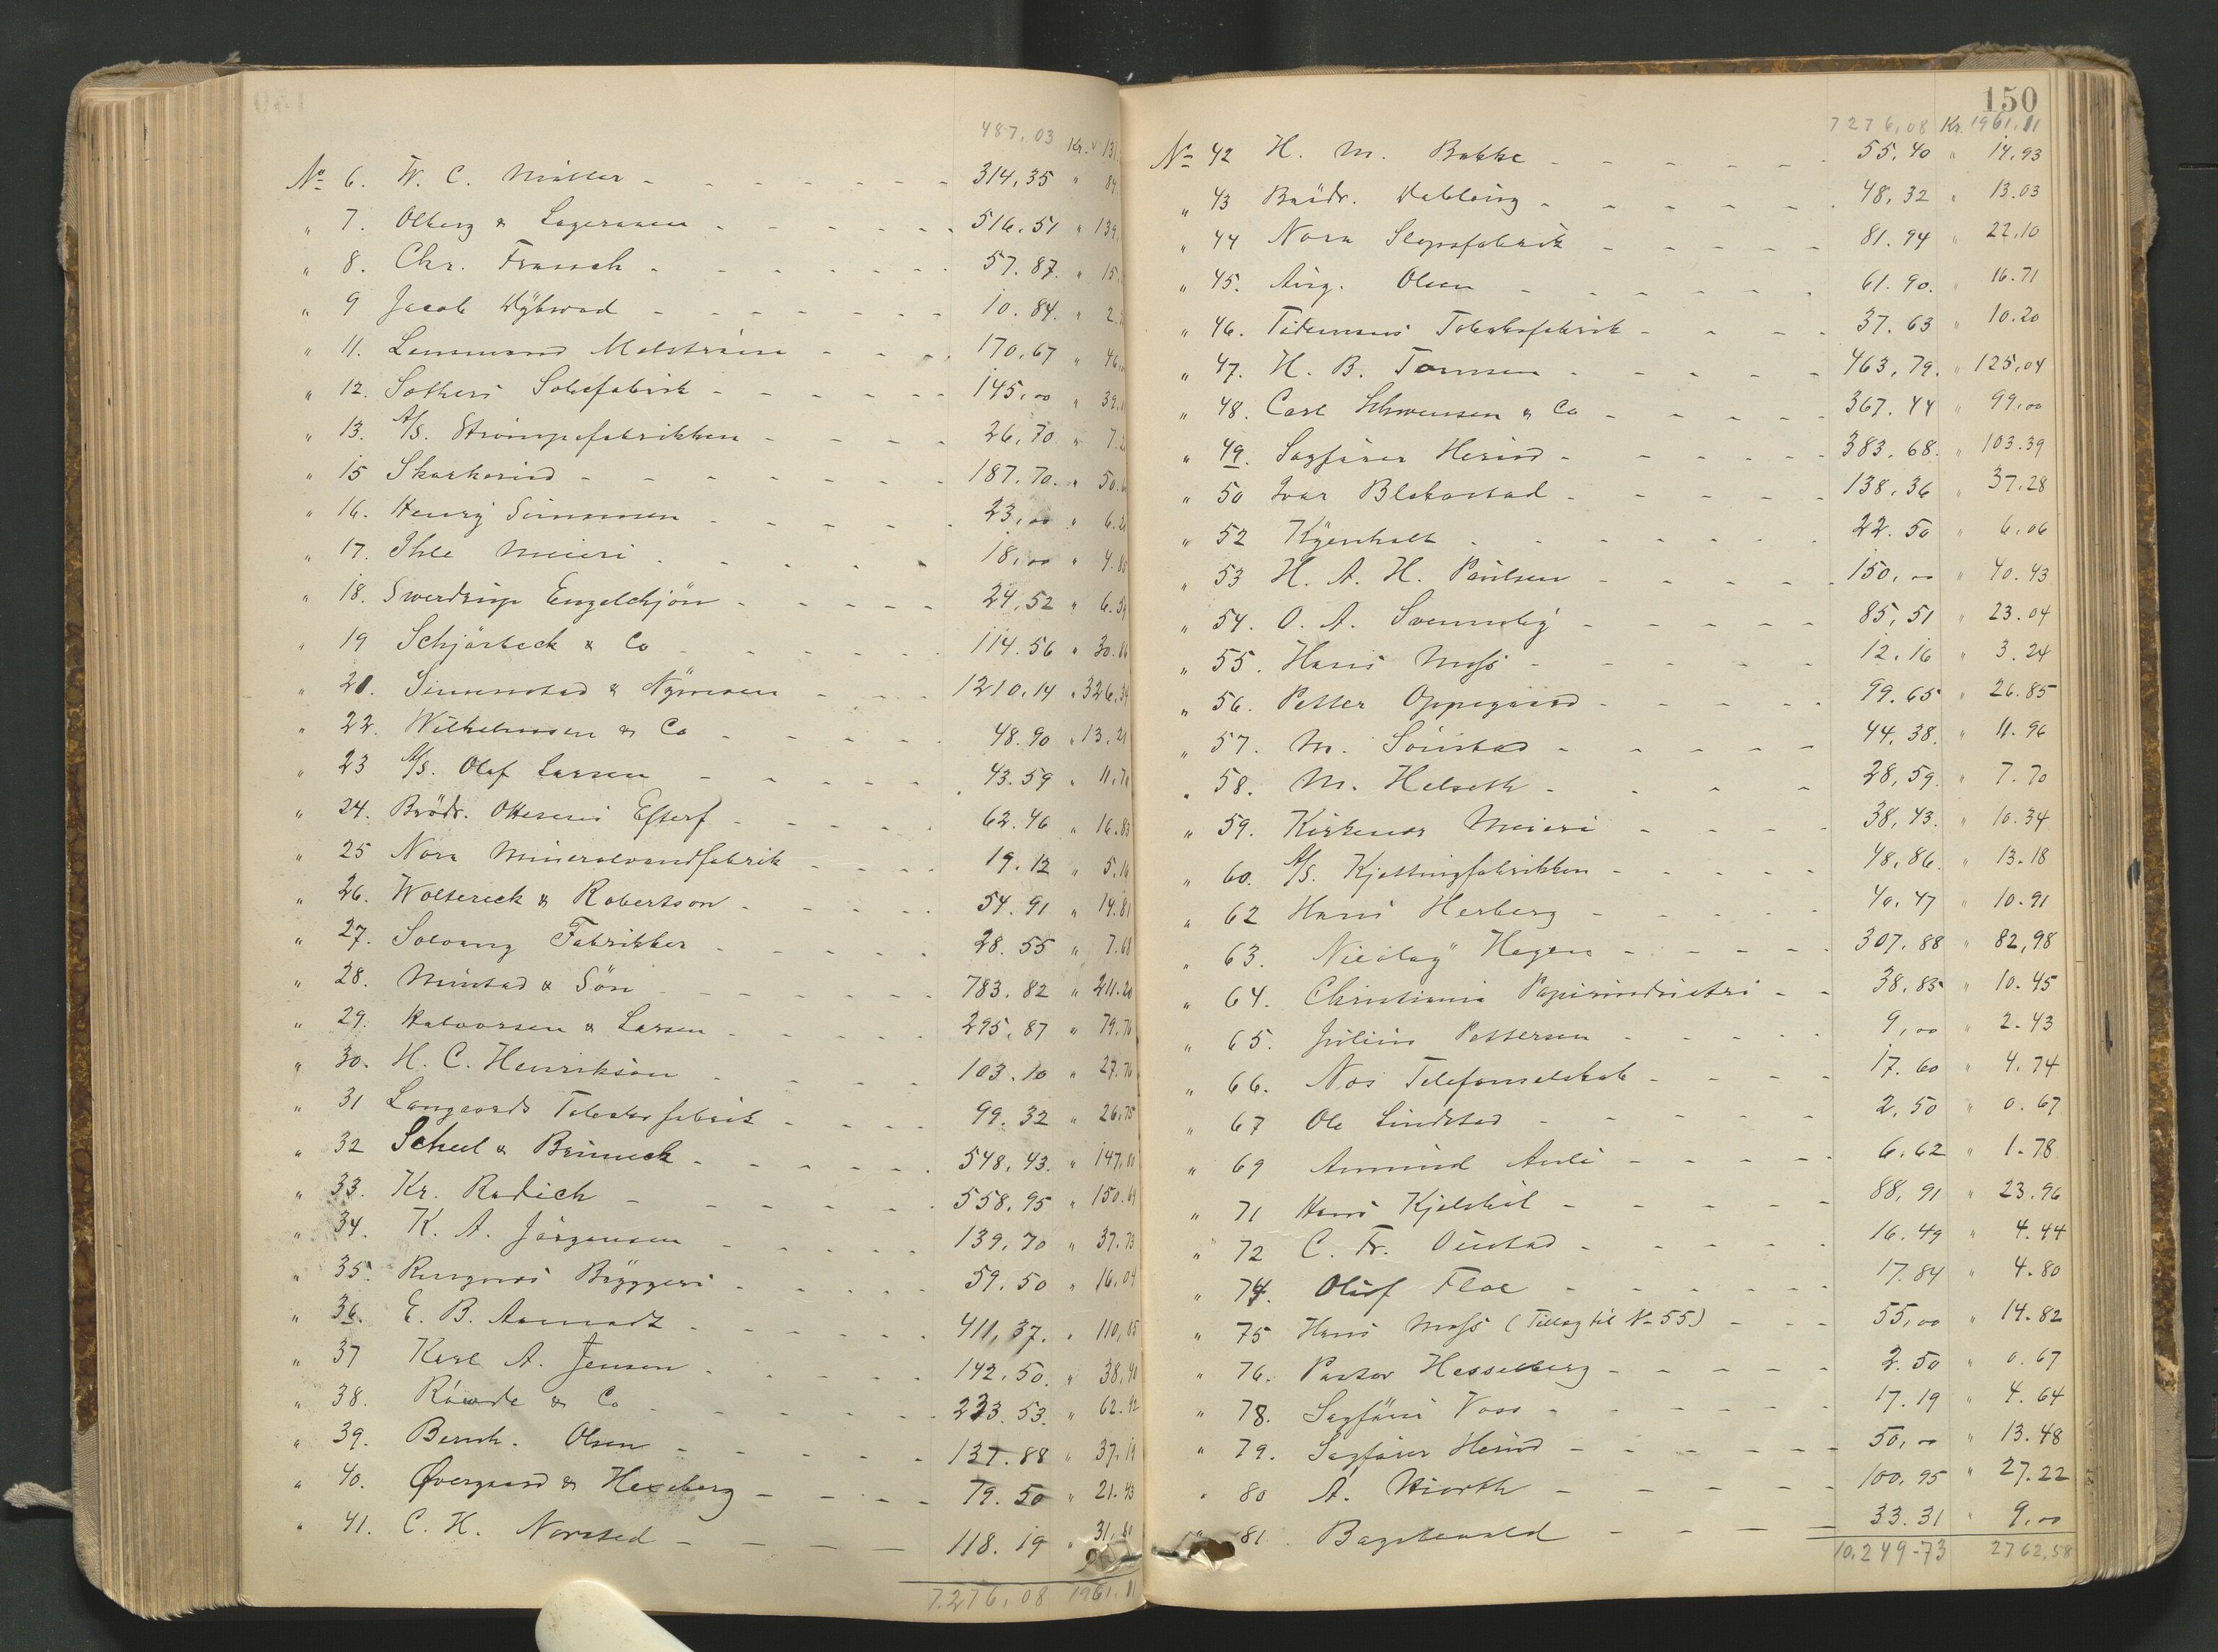 487,03 Kr. 131
No 6. W. C. Møller - 314,35 " 84.
" 7. Olberg & Lagesen - 516.51 " 139.
" 8. Chr. Fransch - 57.87. " 15.
" 9 Jacob Dybwad - 10.84. " 2.
" 11. Lensmand Malstrøm - 170,67 " 46.
" 12. Sæthers Sobefabrik - 145,00 " 39.
" 13. A/S. Strømpefabrikken - 26,70 " 7.2
" 15 Skarkerud - 187.70. " 50.
" 16. Henry Simensen - 23,00 " 6.20
" 17. Ihle Meieri - 18,00 " 4.85
" 18. Swerdrup Engelchjøn - 24,52 " 6.59
" 19 Schjørbeck & Co - 114.56 " 30.86
" 21. Simenstad & Nymoen - 1210,14 " 326,
" 22. Wilhelmsen & Co - 48.90 " 13.21
" 23 A/S. Olaf Larsen - 43.59 " 11.70
" 24. Brödr. Ottesens Efterf - 62.46 " 16.83
" 25 Nora Mineralvandfabrik - 19.12 " 5.16
" 26. Woltereck & Robertson - 54.91 " 14.81
" 27. Solvang Fabrikker - 28.55 " 7.68
" 28. Mustad & Sön - 783.82 " 211.20
" 29. Halvorsen & Larsen - 295,87 " 79.76
" 30. H. C. Henrikson - 103.10 " 27.76
" 31 Langaards Tobaksfabrik - 99.32 " 26,75
" 32 Scheel & Brinnech - 548,43. " 147,
" 33. Kr. Radich - 558,95 " 150.69
" 34. K. A. Jørgensen - 139,70 " 37.73
" 35 Ringnes Bryggeri - 59.50 " 16,04
" 36. E. B. Aamodt - 411,37. " 110,85
" 37 Karl A. Jensen - 142,50. " 38,40
" 38. Rawde & Co - 233.53. " 62.92
" 39. Bernh. Olsen - 137.88 " 37,19
" 40. Øvergaard & Hexeberg - 79.50 " 21.43
" 41. C. H. Norsted - 118.19 " 31,
7.276,08 1961.11
150
7276,08 Kr. 1961,11
No 42 H. M. Bakke - 55,40 " 14,93
" 43 Brödr. Dobloug - 48,32 " 13.03
" 44 Nora Slipsfabrik - 81.94 " 22.10
" 45. Aug. Olsen - 61.90. " 16.71
" 46. Tidemans Tobaksfabrik - 37.63 " 10.20
" 47. H. B. Tonnsen - 463,79. " 125,04
" 48. Carl Schwensen & Co - 367.44 " 99,00
" 49. Sagfører Herud - 383,68. " 103.39
" 50 Ivar Blekastad - 138,36 " 37.28
" 52 Kyenholt - 22.50 " 6,06
" 53 H. A. H. Paulsen - 150,00 " 40.43
" 54. O. A. Svenneby - 85,51 " 23.04
" 55. Hans Moss - 12.16 " 3.24
" 56. Petter Oppegaard - 99.65 " 26.85
" 57. M. Sørstad - 44,38. " 11.96
" 58. M. Helseth - 28,59. " 7.70
" 59. Kirkenær Meieri - 38,43. " 10.34
" 60. A/S. Kjættingfabrikken - 48,86. " 13.18
" 62 Hans Herberg - 40,47 " 10.91
" 63. Nicolay Hagen - 307,88 " 82,98
" 64. Christiania Papirindustri - 38,85 " 10.45
" 65. Julius Pettersen - 9,00 " 2.43
" 66. Nos Telefonselskab - 17.60 " 4,74
" 67 Ole Lindstad - 2,50 " 0.67
" 69 Amund Auli - 6,62 " 1.78
" 71 Hans Kjelstil - 88,91 " 23.96
" 72 C. Fr. Oustad - 16.49 " 4.44
" 74. Oluf Floe - 17.84 " 4.80
" 75 Hans Moss (Tillæg til No 55) - 55,00 " 14.82
" 76. Pastor Hesselberg - 2.50 " 0.67
" 78. Sagfører Voss - 17.19 " 4.64
" 79. Sagfører Herud - 50,00 " 13.48
" 80 A. Hiorth - 100,95 " 27.22
" 81. Bagstevold - 33.31 " 9,00
10.249-73 2762,58